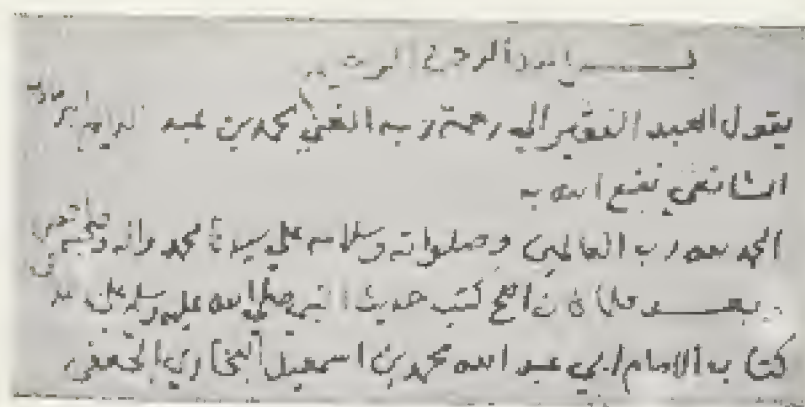 بسم الله الرحمن الرحيم
يقول العبد الفقير الي رحمة ربه الغني محمد بن عبد الدايم البرماوي
الشافعي نفع الله به
الحمد لله رب العالمين وصلواته وسلامه علي سيدنا محمد واله وصحبه اجمعين
وبعد فلما كان اصح كتب حديث النبي صلي الله عليه وسلم
كتاب الامام ابي عبد الله محمد بن اسمعيل البخاري الجعفي